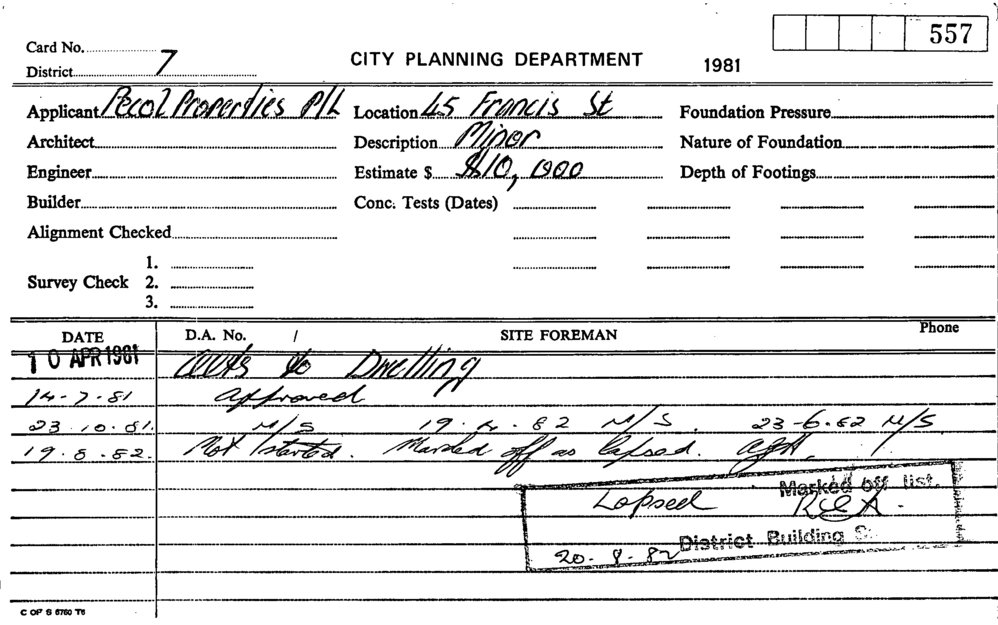 557
Card No.
District 7
CITY PLANNING DEPARTMENT 1981
Applicant Pecol Properties P/L Location 45 Francis St Foundation Pressure
Architect Description Minor Nature of Foundation
Engineer Estimate $ $10,000 Depth of Footings
Builder Conc. Tests (Dates)
Alignment Checked
1.
Survey Check 2.
3.
DATE D.A. No. / SITE FOREMAN Phone
10 APR 1981 to Dwelling
14-7-81 Approved
23.10.81. N/S 19.4.82 N/S. 23-6-82 N/S
19.8.82. Not started. Marked off as lapsed.
Marked off list.
Lapsed
District Building
20-9-82
C OF S 6760 T6